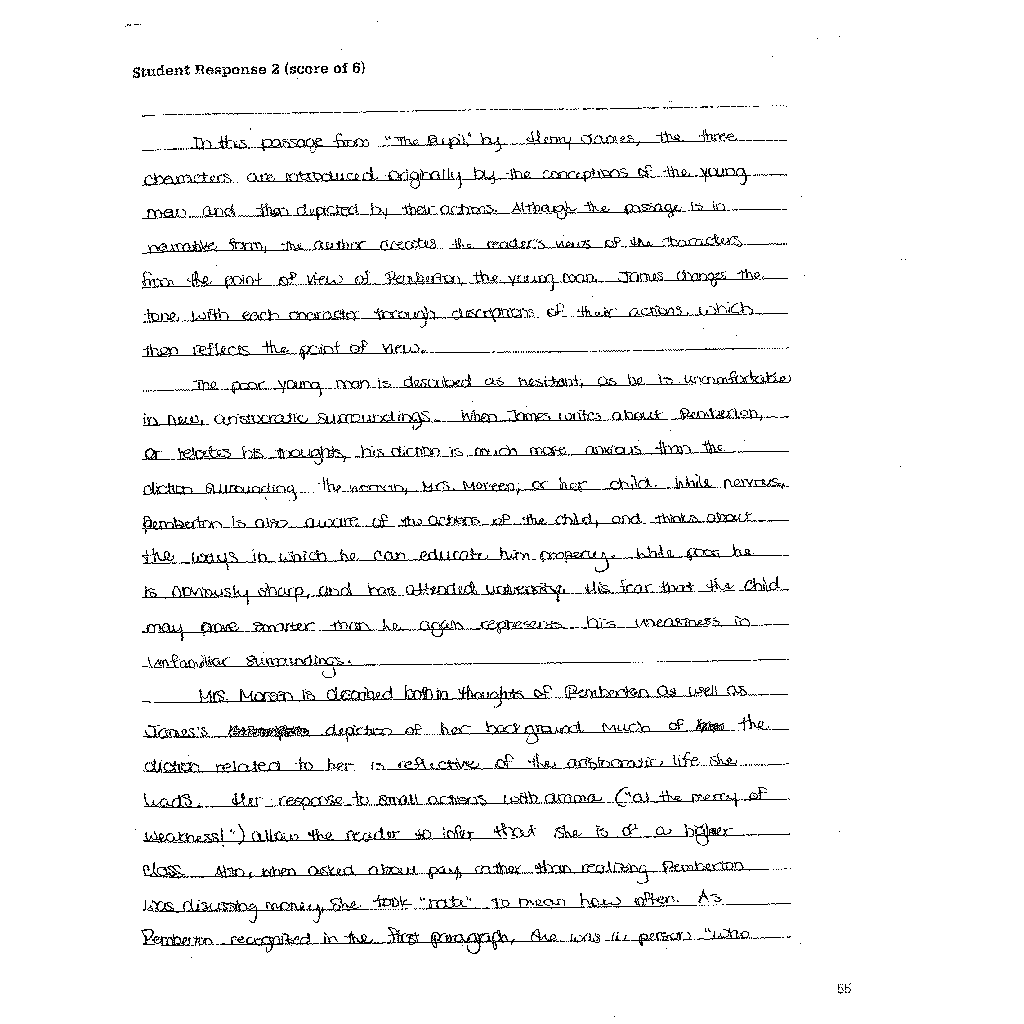 Student Response 2 (score of 6)
In this passage from "The Pupil," by Henry James, the three
characters are introduced originally by the conceptions of the young
man and then depicted by their actions. Although the passage is in
narrative form, the author creates the reader's views of the characters
from the point of view of Pemberton, the young man. James changes the
tone with each character through descriptions of their actions, which
then reflects the point of view.
The poor young man is described as hesitant, as he is uncomfortable
in new, aristocratic surroundings. When James writes about Pemberton,
or relates his thoughts, his diction is much more anxious than the
diction surrounding the woman, Mrs. Moreen, or her child. While nervous,
Pemberton is also aware of the actions of the child, and thinks about
the ways in which he can educate him properly. While poor he
is obviously sharp, and has attended university. His fear that the child
may prove smarter than he again represents his uneasiness in
unfamiliar surroundings.
Mrs. Moreen is described both in thoughts of Pemberton as well as
James's depiction of her background. Much of the
diction related to her is reflective of the aristocratic life she
leads. Her response to small actions with drama ("at the mercy of
weakness!") allow the reader to infer that she is of a higher
class. Also, when asked about pay, rather than realizing Pemberton
was discussing money, she took "rate" to mean how often. As
Pemberton recognized in the first paragraph, she was a person "who
55